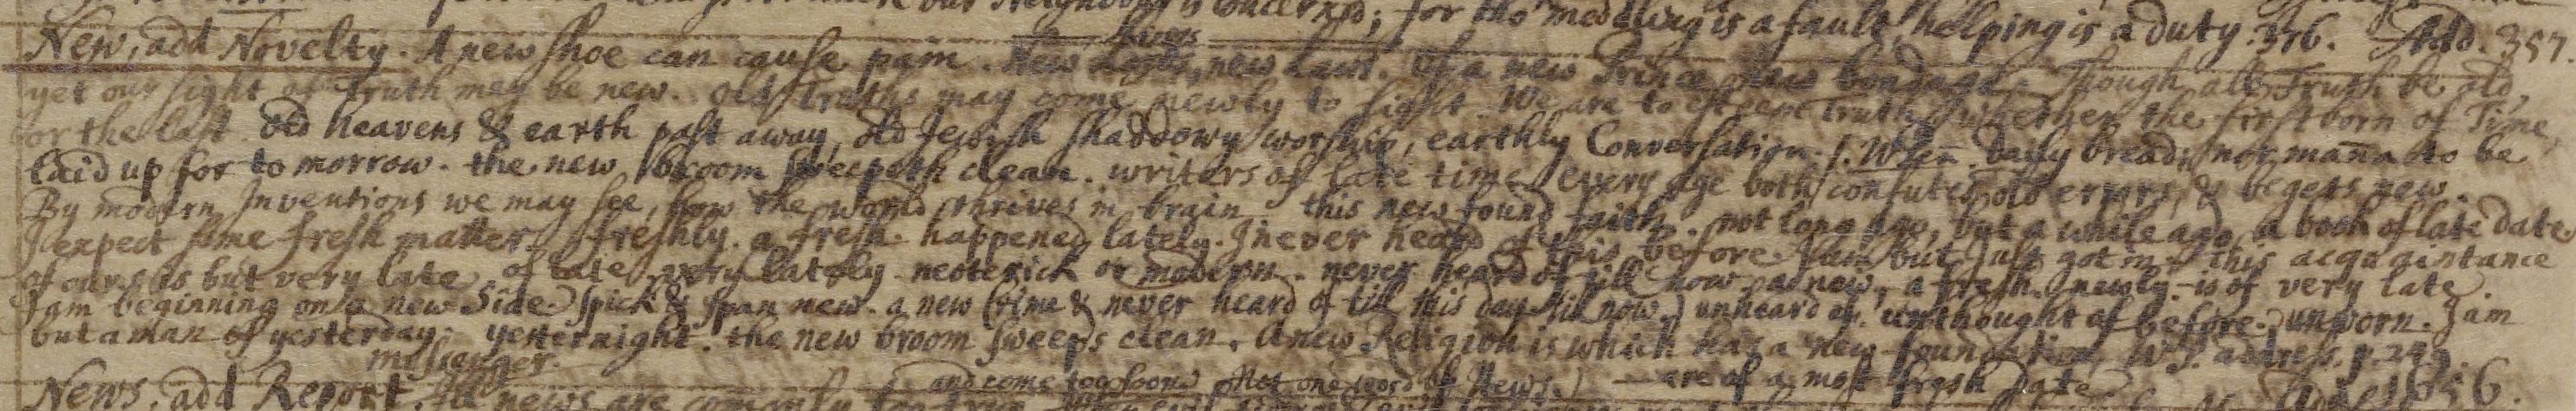 our Neighbour is concerned; for tho medling is a fault, helping is a duty. 376. Add. 357.
New, add Novelty. A new shoe can cause pain. New kings, new laws. Of a new Prince, new bondage. Though all Truth be old,
yet our sight of Truth may be new. old Truths may come newly to light. We are to esteeme Truth, whether the first born of Time,
or the last. old heavens & earth past away, old Jewish shaddowy worship, earthly Conversation. When daily bread, nor mana to be
laid up for to morrow. the new broom sweepeth clean. writers of late time. every age both confutes old errors, & begets new.
By modern Inventions we may see, how the world thrives in brain. this new found faith. not long ago, but a while ago, a book of late date
I expect some fresh matter. freshly. a fresh. happened lately. I never heard of this before. I am but just got in. this acquaintance
of ours is but very late. of late, very lately. neoterick or modern. never heard of till now. anew, a fresh. newly. is of very late.
I am beginning on a new Side. Spick & Span new. a new crime & never heard of till this day. till now.) unheard of. unthought of before. unworn. I am
but a man of yesterday. yesternight. the new broom sweeps clean. A new Religion is which has a new foundation, W.P. address. p. 249.
messenger. and come too soon. Not one word of News.) — are of a most fresh date
News, add Report. All news are